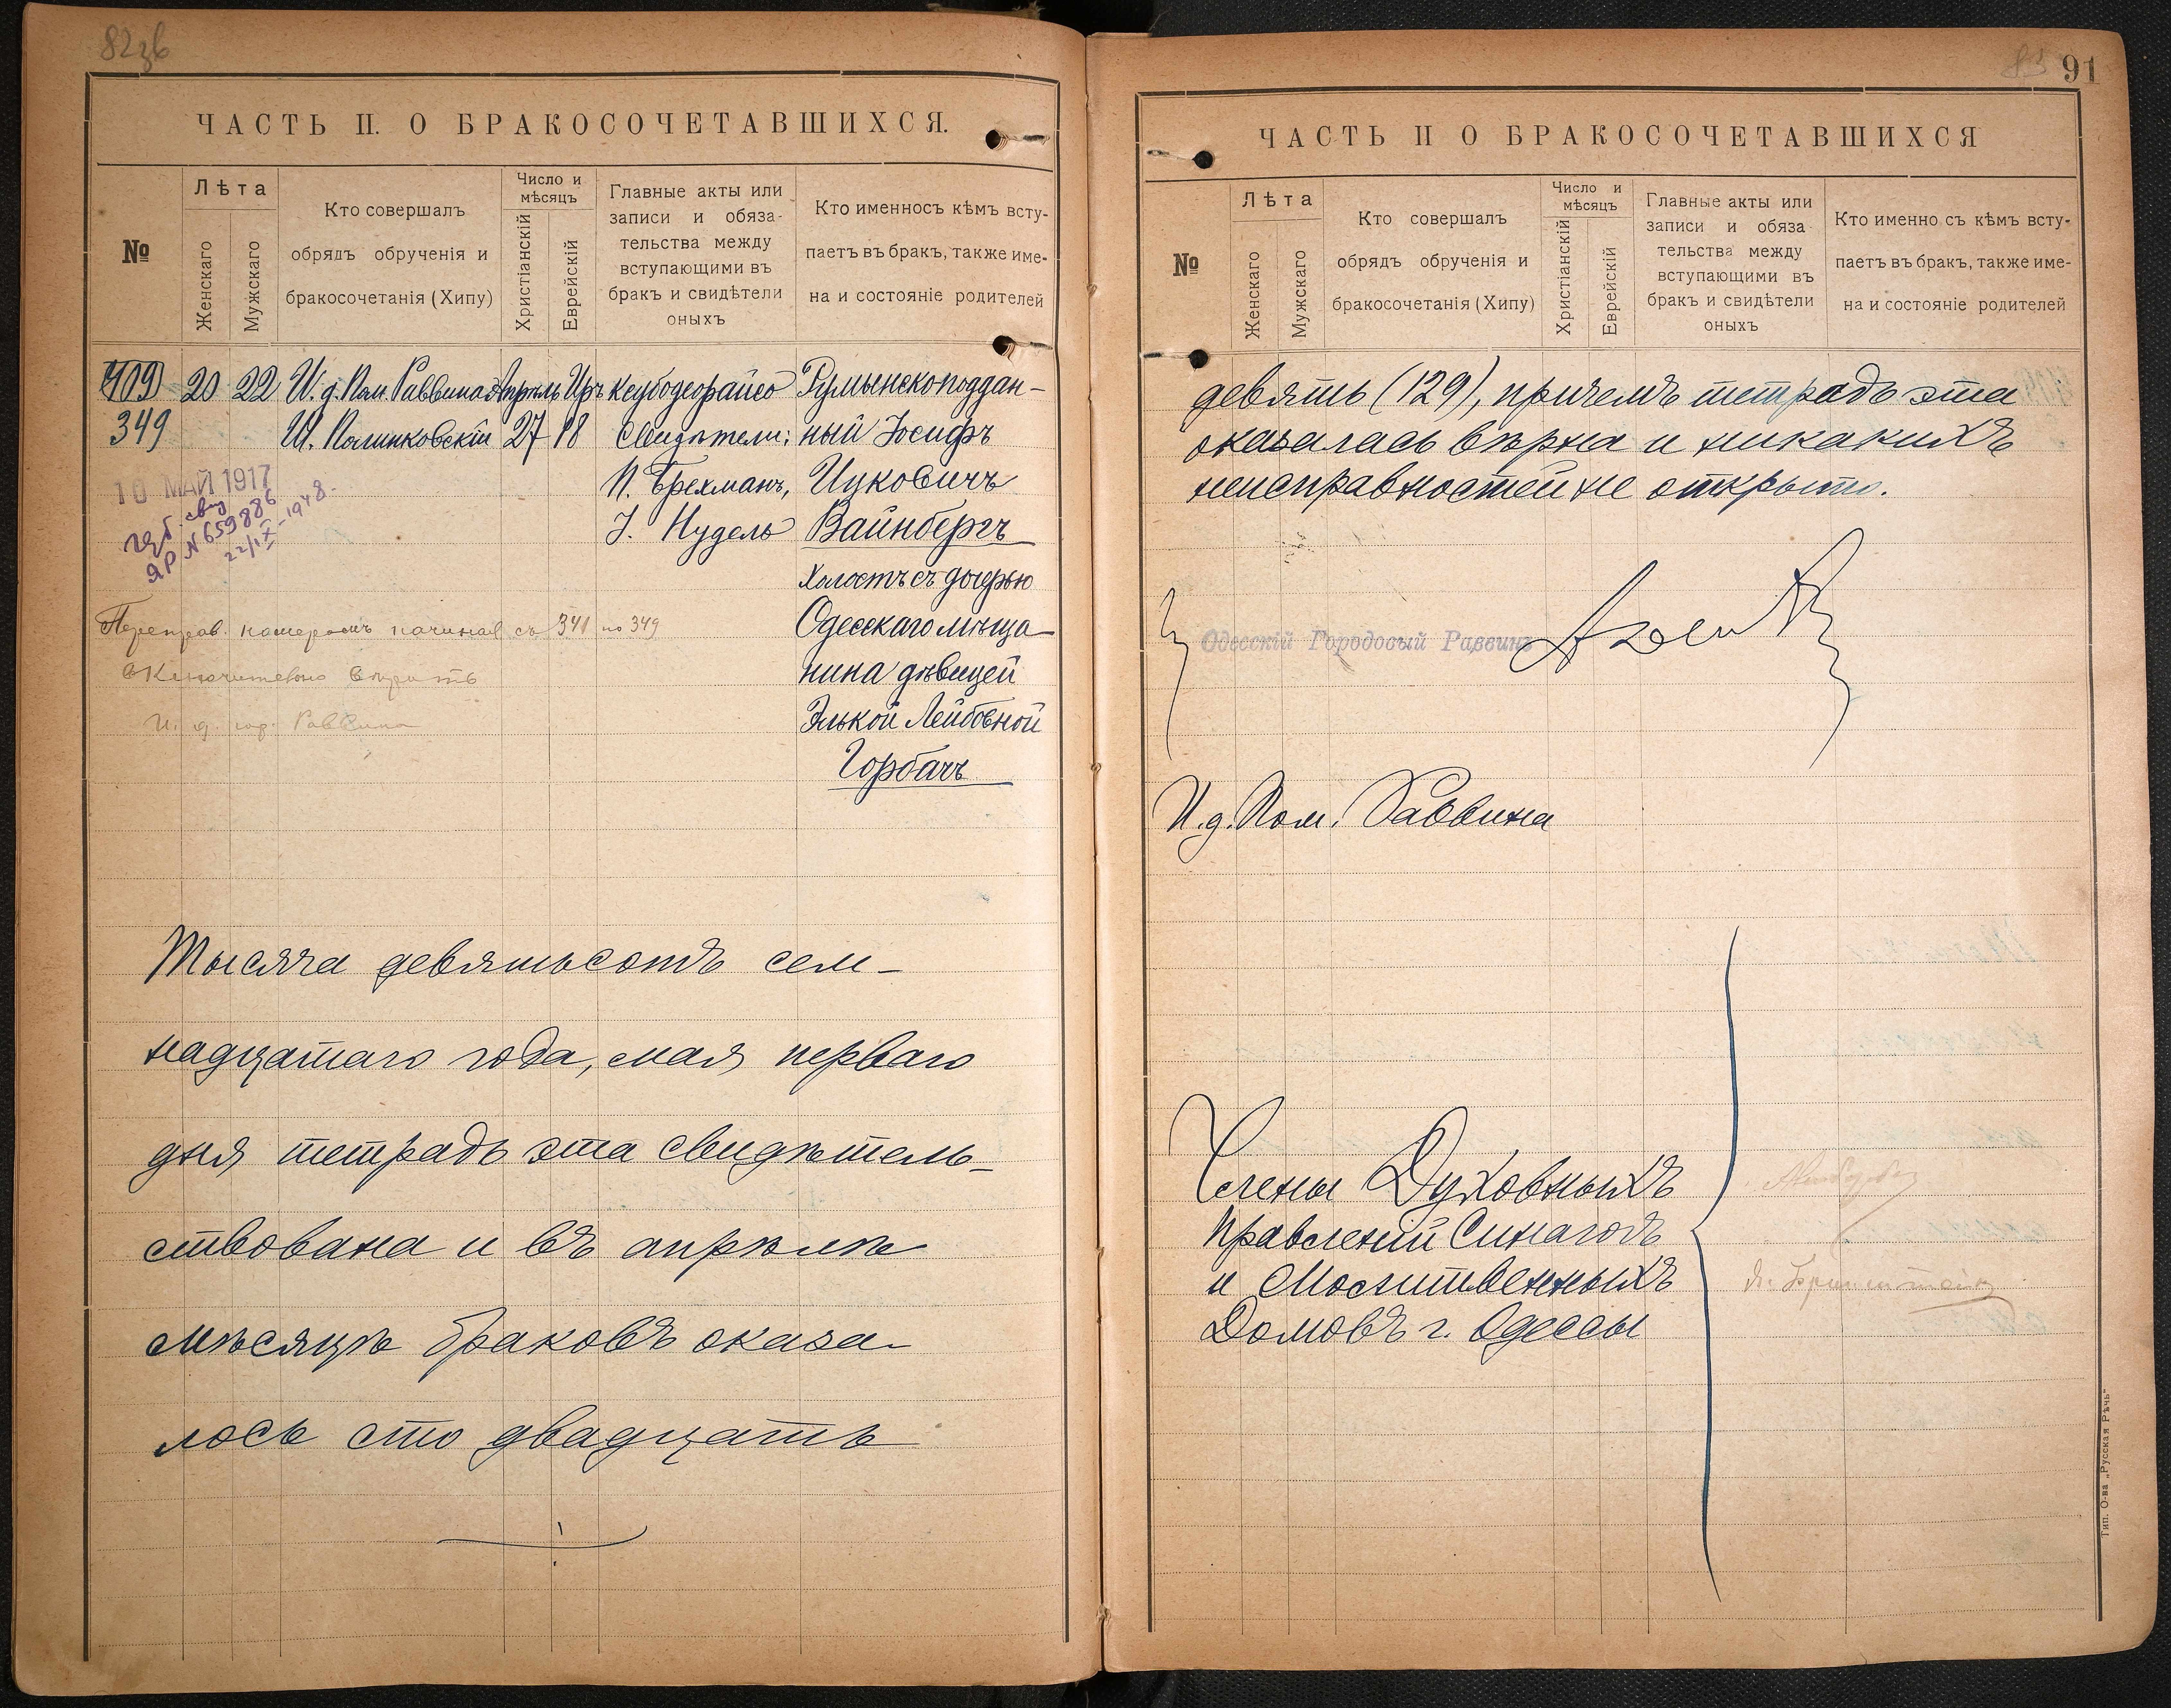 82зв
ЧАСТЬ II. О БРАКОСОЧЕТАВШИХСЯ.
№
Лѣта
Женскаго
Мужскаго
Кто совершалъ
обрядъ обрученія и
бракосочетанія (Хипу)
Число и
мѣсяцъ
Христіанскій
Еврейскій
Главные акты или
записи и обяза-
тельства между
вступающими въ
бракъ и свидѣтели
оныхъ
Кто именносъ кѣмъ всту-
паетъ въ бракъ, также име-
на и состояніе родителей
409
349
20
22
И. д. Пом. Раввина
Ш. Полинковскій
Апрѣль
27
Иръ
18
Ксубодеорайсо
Свидѣтели:
П. Брехманъ,
І. Нудель
Румынскоподдан-
ный Іосифъ
Ицковичъ
Вайнбергъ
Холостъ съ дочерью
Одесскаго мѣща-
нина дѣвицей
Элькой Лейбовной
Горбачъ
10 МАЙ 1917
свид
ЯР №659886
22/IX-1948.
Переправ. номеромъ начиная съ 341 по 349
включительно вѣрить
И. д. гор. Раввина
Тысяча девятьсотъ сем-
надцатаго года, мая перваго
дня тетрадь эта свидѣтель-
ствована и въ апрѣлѣ
мѣсяцѣ браковъ оказа-
лось сто двадцать
91
ЧАСТЬ II О БРАКОСОЧЕТАВШИХСЯ
№
Лѣта
Женскаго
Мужскаго
Кто совершалъ
обрядъ обрученія и
бракосочетанія (Хипу)
Число и
мѣсяцъ
Христіанскій
Еврейскій
Главные акты или
записи и обяза
тельства между
вступающими въ
бракъ и свидѣтели
оныхъ
Кто именно съ кѣмъ всту-
паетъ въ бракъ, также име-
на и состояніе родителей
девять (129), причемъ тетрадь эта
оказалась вѣрна и никакихъ
неисправностей не открыто.
Одесскій Городовый Раввинъ
И.д. Пом. Раввина
Члены Духовныхъ
Правленій Синагогъ
и Молитвенныхъ
Домовъ г. Одессы
Тип. О-ва „Русская Рѣчь"